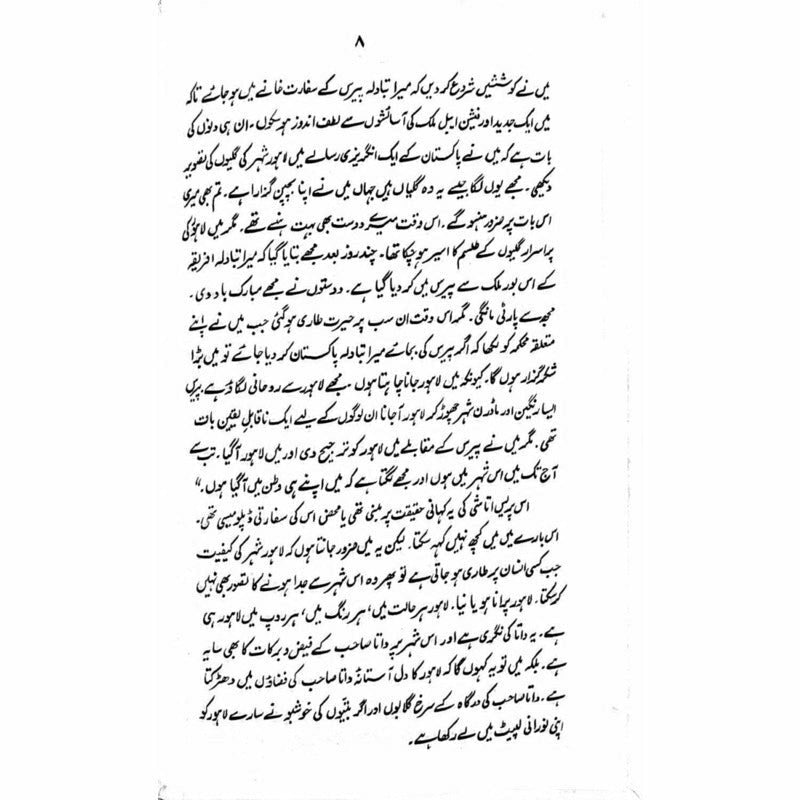 ۸
میں نے کوششیں شروع کر دیں کہ میرا تبادلہ پیرس کے سفارت خانے میں ہو جائے تاکہ
میں ایک جدید اور فیشن ایبل ملک کی آسائشوں سے لطف اندوز ہو سکوں۔ ان ہی دنوں کی
بات ہے کہ میں نے پاکستان کے ایک انگریزی رسالے میں لاہور شہر کی گلیوں کی تصویر
دیکھی۔ مجھے یوں لگا جیسے یہ وہ گلیاں ہیں جہاں میں نے اپنا بچپن گذارا ہے۔ تم بھی میری
اس بات پر ضرور ہنسو گے۔ اس وقت میرے دوست بھی بہت ہنسے تھے۔ مگر میں لاہور کی
پراسرار گلیوں کے طلسم کا اسیر ہو چکا تھا۔ چند روز بعد مجھے بتایا گیا کہ میرا تبادلہ افریقہ
کے اس بور ملک سے پیرس میں کر دیا گیا ہے۔ دوستوں نے مجھے مبارک باد دی۔
مجھ سے پارٹی مانگی۔ مگر اس وقت ان سب پر حیرت طاری ہو گئی جب میں نے اپنے
متعلقہ محکمہ کو لکھا کہ اگر پیرس کی بجائے میرا تبادلہ پاکستان کر دیا جائے تو میں بڑا
شکر گذار ہوں گا۔ کیونکہ میں لاہور جانا چاہتا ہوں۔ مجھے لاہور سے روحانی لگاؤ ہے پیرس
ایسا رنگین اور ماڈرن شہر چھوڑ کر لاہور آ جانا ان لوگوں کے لیے ایک ناقابل یقین بات
تھی۔ مگر میں نے پیرس کے مقابلے میں لاہور کو ترجیح دی اور میں لاہور آ گیا۔ تب سے
آج تک میں اس شہر میں ہوں اور مجھے لگتا ہے کہ میں اپنے ہی وطن میں آ گیا ہوں۔"
اس پریس اتاشی کی یہ کہانی حقیقت پر مبنی تھی یا محض اس کی سفارتی ڈپلومیسی تھی۔
اس بارے میں میں کچھ نہیں کہہ سکتا۔ لیکن یہ میں ضرور جانتا ہوں کہ لاہور شہر کی کیفیت
جب کسی انسان پر طاری ہو جاتی ہے تو پھر وہ اس شہر سے جدا ہونے کا تصور بھی نہیں
کر سکتا۔ لاہور پرانا ہو یا نیا۔ لاہور ہر حالت میں، ہر رنگ میں، ہر روپ میں لاہور ہی
ہے۔ یہ داتا کی نگری ہے اور اس شہر پر داتا صاحب کے فیض و برکات کا بھی سایہ
ہے۔ بلکہ میں تو یہ کہوں گا کہ لاہور کا دل آستانۂ داتا صاحب کی فضاؤں میں دھڑکتا
ہے۔ داتا صاحب کی درگاہ کے سرخ گلابوں اور اگر بتیوں کی خوشبو نے سارے لاہور کو
اپنی نورانی لپیٹ میں لے رکھا ہے۔